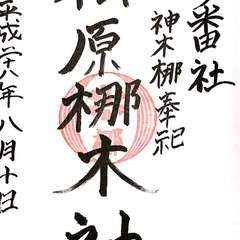 番社
神木梛奉祀
原梛木神
平成二十八年八月十日